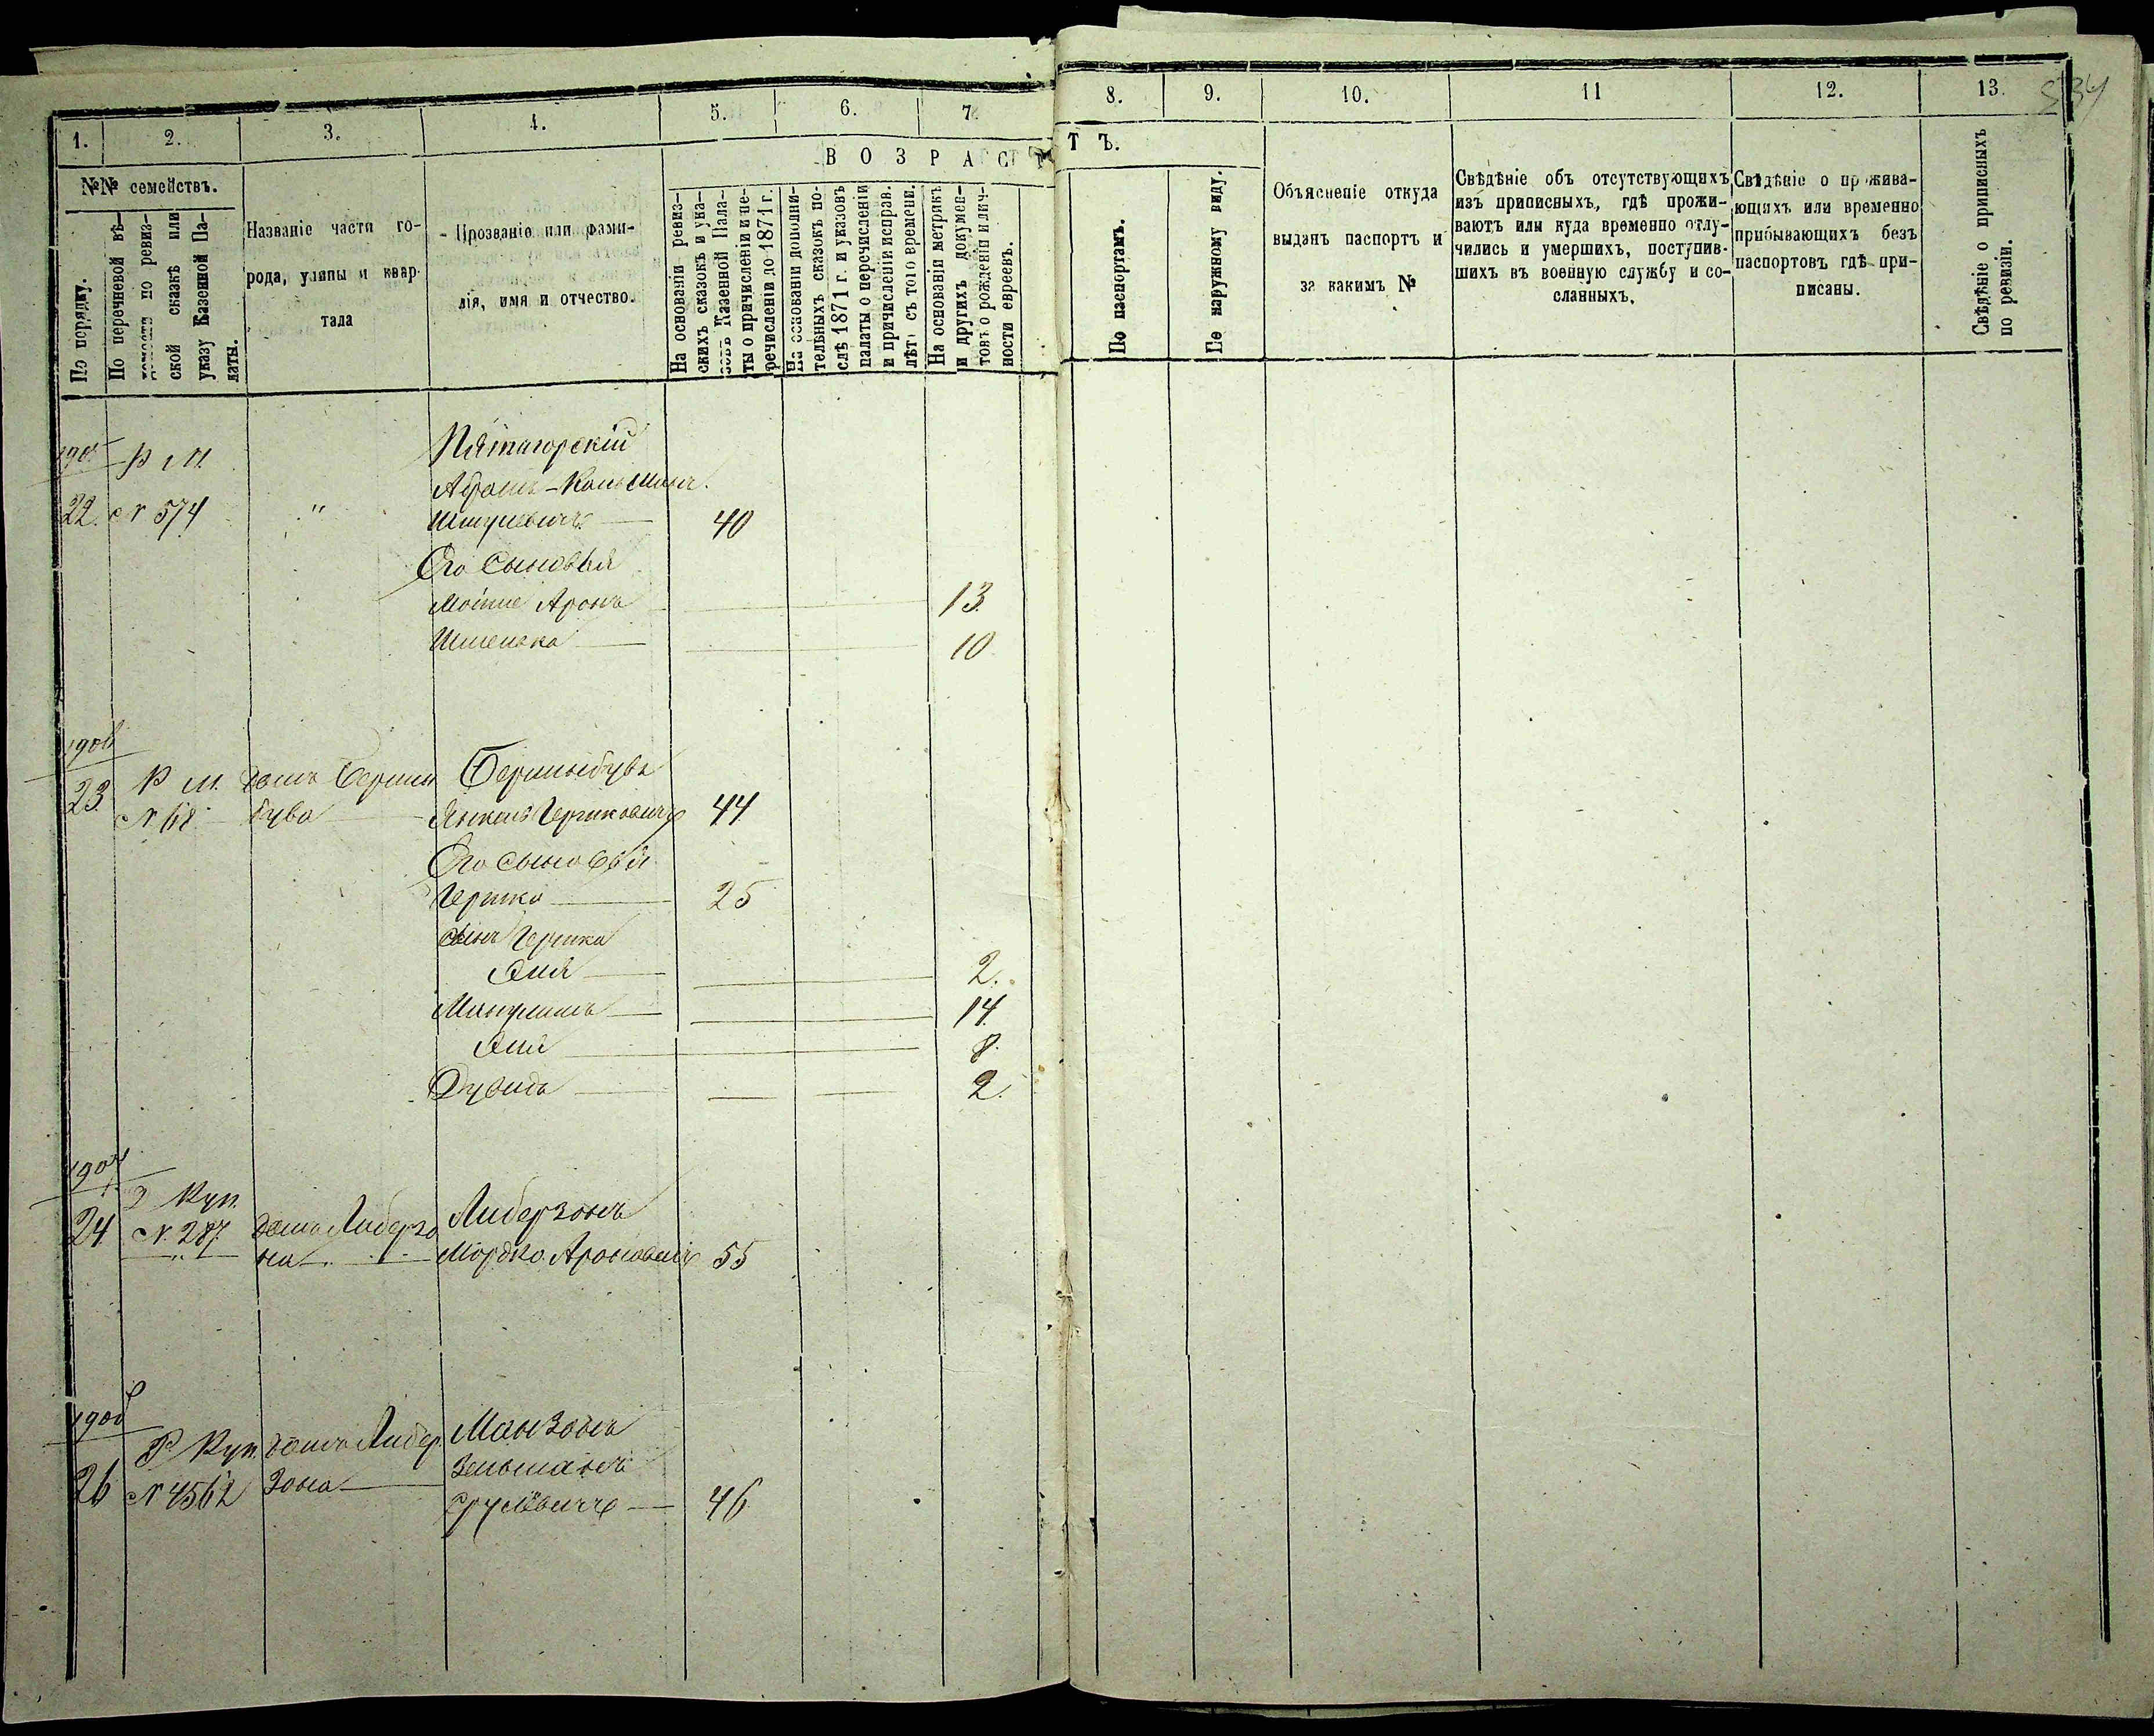 1. 2. 3. 4. 5. 6. 7. 8. 9. 10. 11 12. 13.
534
№№ семействъ.
По порядку.
По перечневой вѣ-
домости по ревиз-
ской сказкѣ или
указу Казенной Па-
латы.
Названіе части го-
рода, улицы и квар-
тала
Прозваніе или фами-
лія, имя и отчество.
ВОЗРАСТЪ.
На основаніи ревиз-
скихъ сказокъ и ука-
зовъ Казенной Пала-
ты о причисленіи и пе-
речисленіи до 1871 г.
На основаніи дополни-
тельныхъ сказокъ по-
слѣ 1871 г. и указовъ
палаты о перечисленіи
и причисленіи исправ.
лѣтъ съ того времени.
На основаніи метрикъ
и другихъ докумен-
товъ о рожденіи и лич-
ности евреевъ.
По паспортамъ.
По наружному виду.
Объясненіе откуда
выданъ паспортъ и
за какимъ №
Свѣдѣніе объ отсутствующихъ
изъ приписныхъ, гдѣ прожи-
ваютъ или куда временно отлу-
чились и умершихъ, поступив-
шихъ въ военную службу и со-
сланныхъ.
Свѣдѣніе о прожива-
ющихъ или временно
прибывающихъ безъ
паспортовъ гдѣ при-
писаны.
Свѣдѣніе о приписныхъ
по ревизіи.
Р М. Пятигорскій
Абрамъ-Кальманъ
22. № 574 " Шмулевичъ 40
Его сыновья
Мойше Аронъ 13.
10
1906
Р М. домъ Бершин
23 № 68 бува
Янкель Гершковичъ 44
Его сыновья
Гершко 25
сынъ Гершка
2.
14.
8.
Дувидъ 2.
1907
2 Куп. Либерзонъ
24 № 287. домъ Либерзо
на Мордко Ароновичъ 55
1908
Р Куп. домъ Либер Манзонъ
26 № 4562 зона Зельманъ
Срулевичъ 46